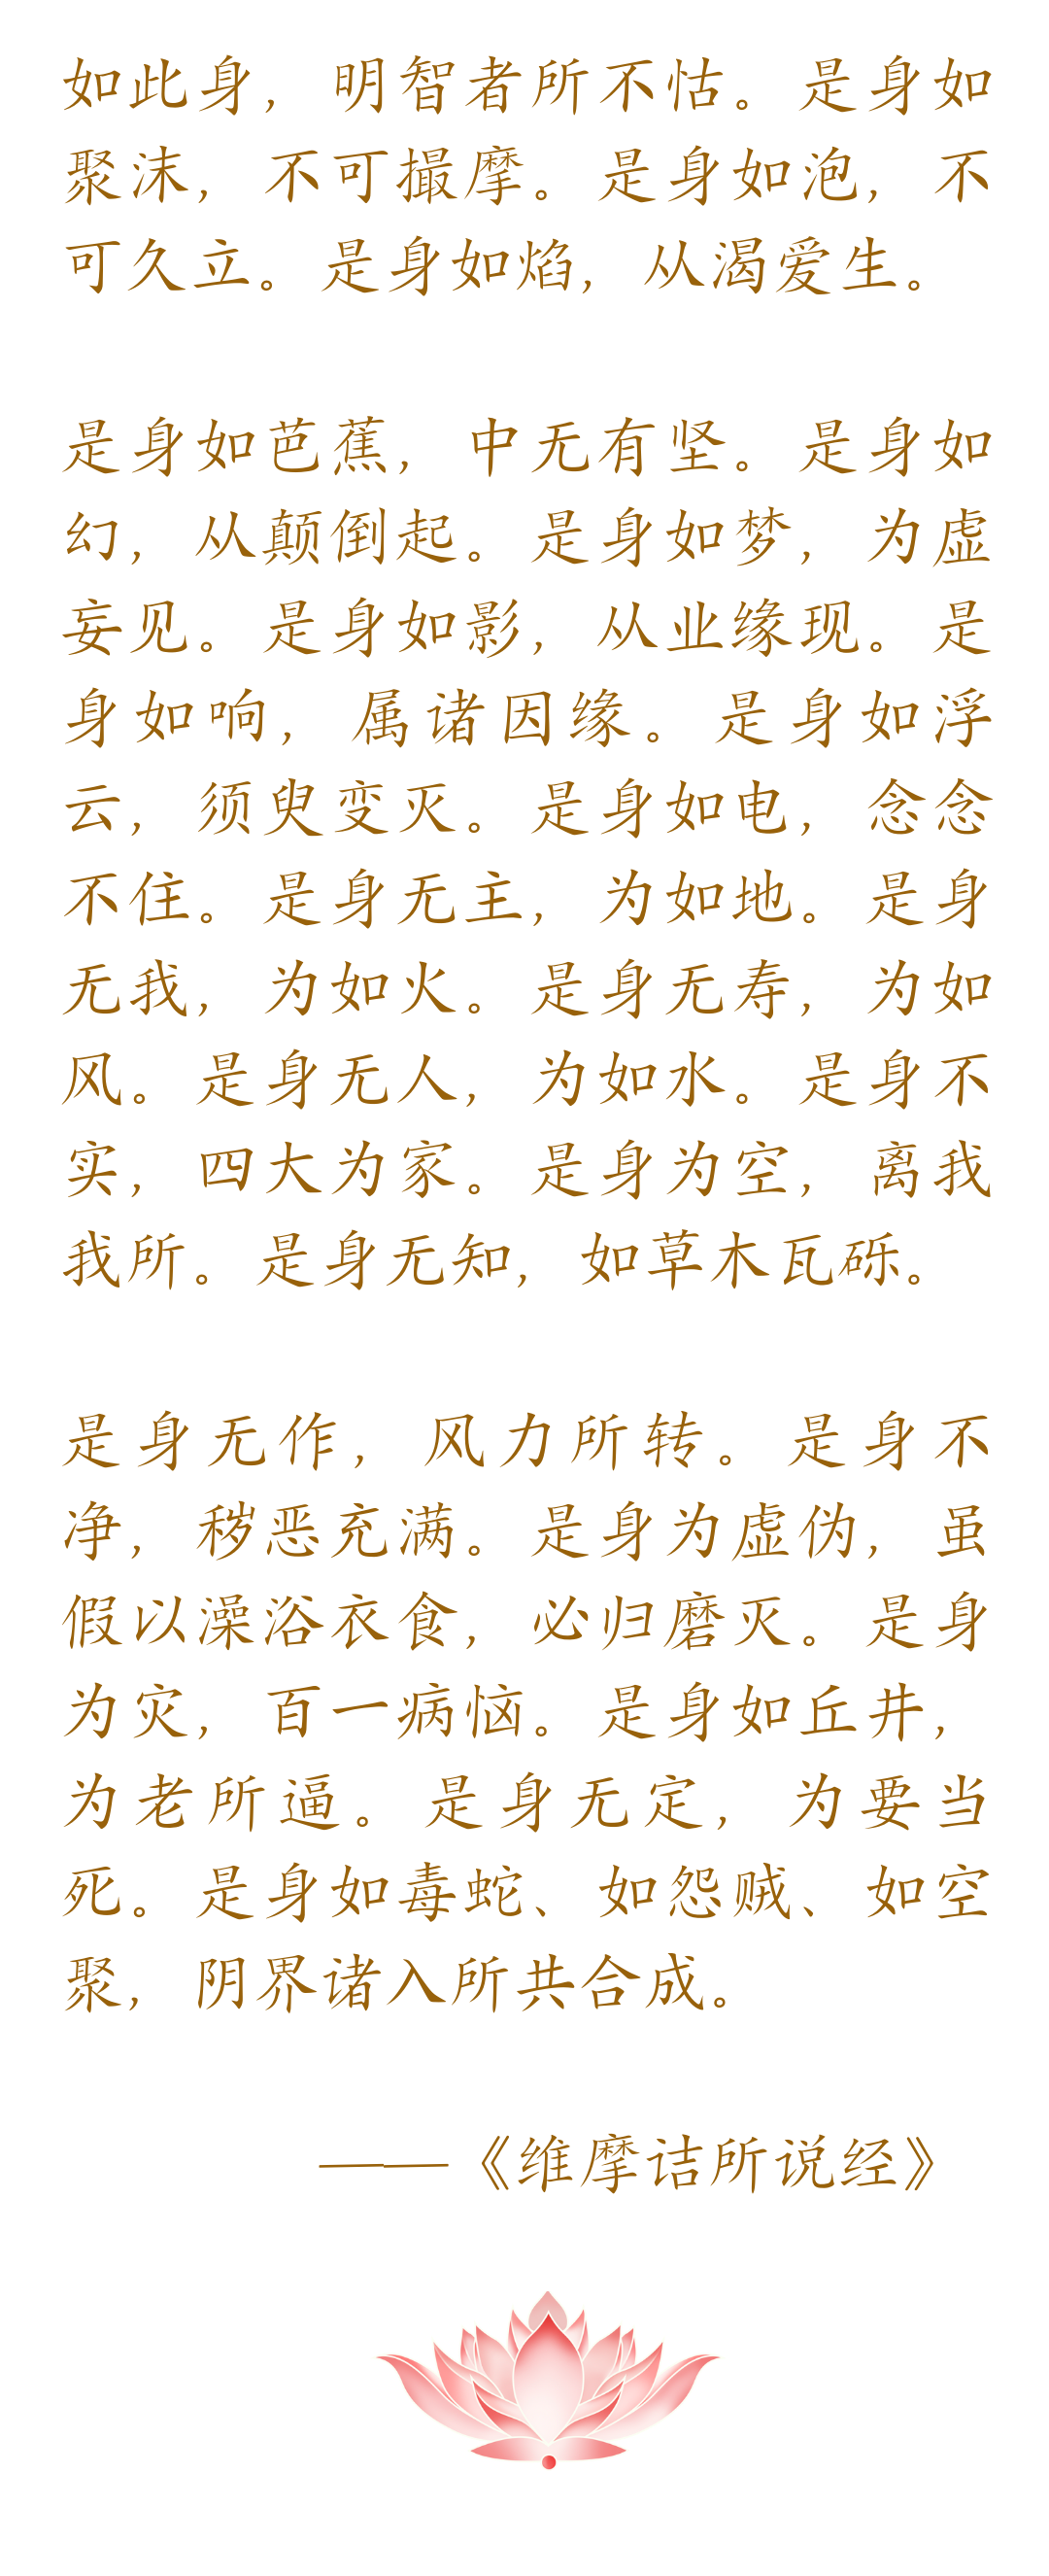 如此身，明智者所不怙。是身如
聚沫，不可撮摩。是身如泡，不
可久立。是身如焰，从渴爱生。
是身如芭蕉，中无有坚。是身如
幻，从颠倒起。是身如梦，为虚
妄见。是身如影，从业缘现。是
身如响，属诸因缘。是身如浮
云，须臾变灭。是身如电，念念
不住。是身无主，为如地。是身
无我，为如火。是身无寿，为如
风。是身无人，为如水。是身不
实，四大为家。是身为空，离我
我所。是身无知，如草木瓦砾。
是身无作，风力所转。是身不
净，秽恶充满。是身为虚伪，虽
假以澡浴衣食，必归磨灭。是身
为灾，百一病恼。是身如丘井，
为老所逼。是身无定，为要当
死。是身如毒蛇、如怨贼、如空
聚，阴界诸入所共合成。
——《维摩诘所说经》